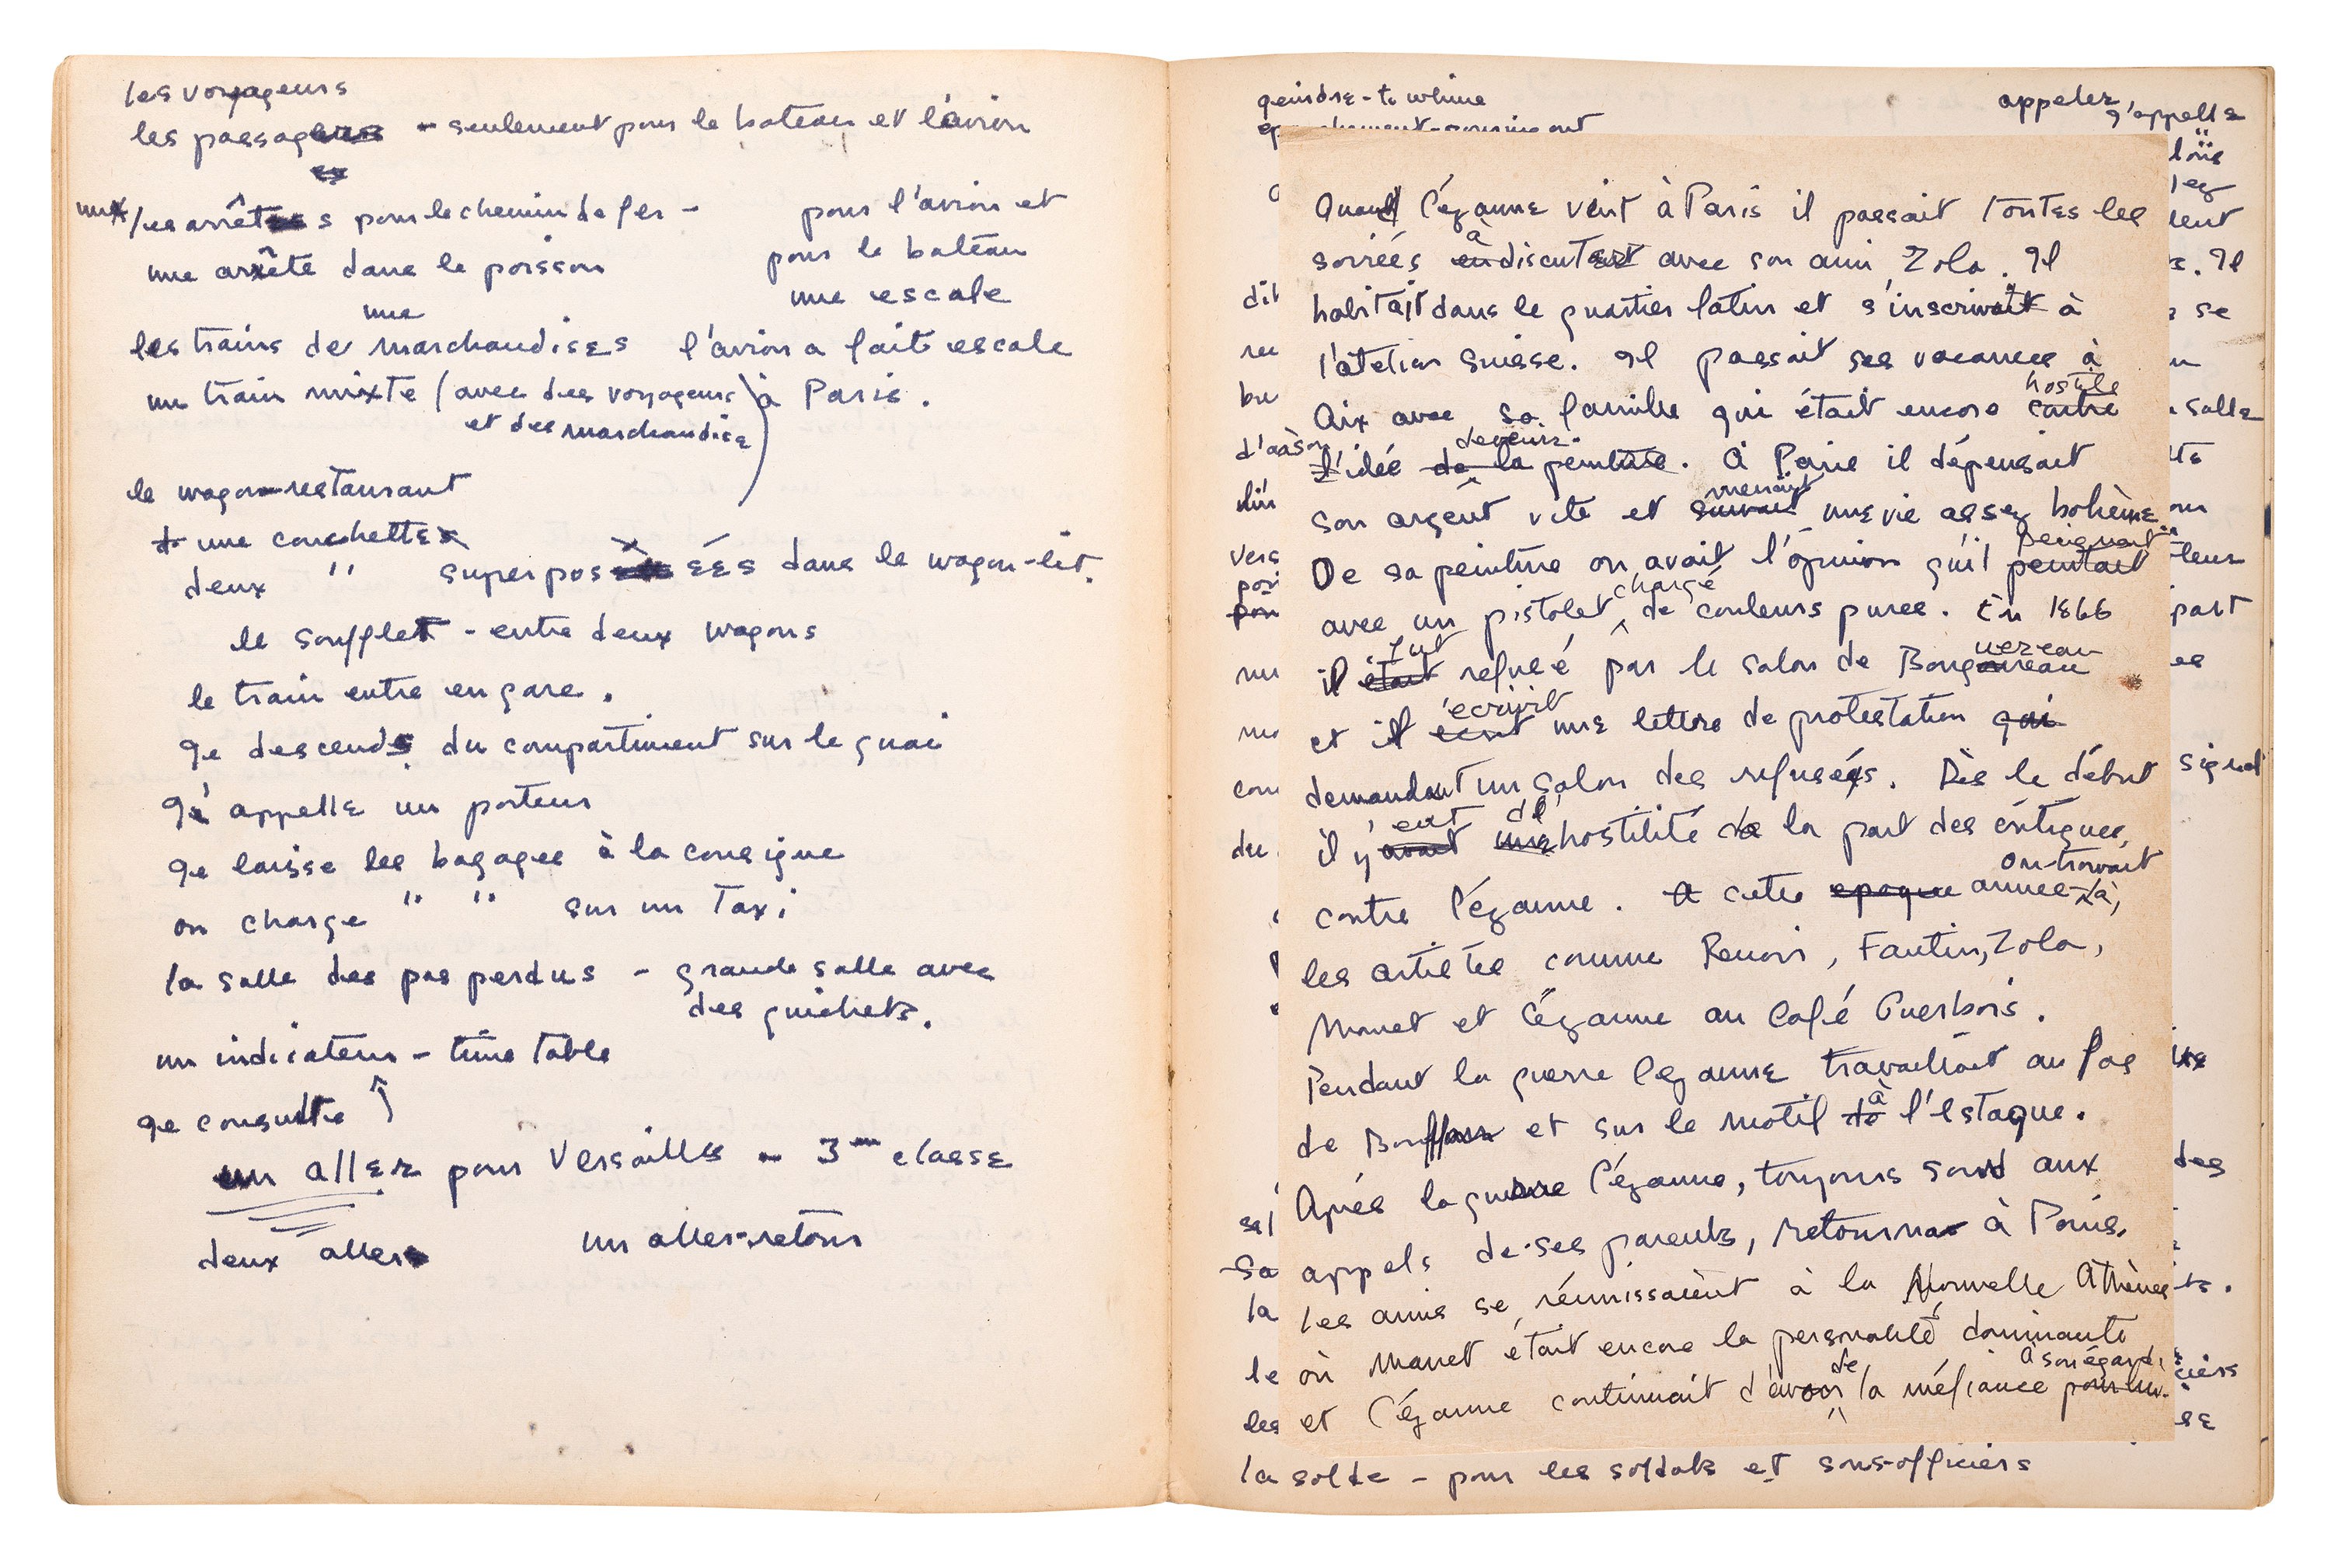 les voyageurs
les passagers - seulement pour le bateau et l'avion
un les arrêts pour le chemin de fer - pour l'avion et
une arête dans le poisson pour le bateau
une une escale
les trains de marchandises l'avion a fait escale
un train mixte (avec des voyageurs à Paris.
et des marchandise)
le wagon-restaurant
une couchette
deux " superposées dans le wagon-lit.
le soufflet - entre deux wagons
le train entre en gare.
Je descends du compartiment sur le quai
J'appelle un porteur
Je laisse les bagages à la consigne
on charge " " sur un Taxi
la salle des pas perdus - grande salle avec
des guichets.
un indicateur - time table
Je consulte ↑
un aller pour Versailles - 3me classe
deux allers un aller-retour
geindre - to whine
appeler j'appelle
Quand Cézanne vint à Paris il passait toutes les
à
soirées en discutant avec son ami Zola. Il
habitait dans le quartier latin et s'inscrivait à
l'atelier Suisse. Il passait ses vacances à
hostile
Aix avec sa famille qui était encore contre
devenir
l'idée de la peinture. A Paris il dépensait
menait
son argent vite et suivait une vie assez bohème
peignait
De sa peinture on avait l'opinion qu'il peintait
chargé
avec un pistolet de couleurs pures. En 1866
fut uereau
il était refusé par le salon de Bougereau
écrivit
et il écrit une lettre de protestation qui
demandant un salon des refusés. Dès le début
eut de l'
il y avait une hostilité de la part des critiques,
on trouvait
contre Cézanne. A cette epoque année-là,
les artistes comme Renoir, Fantin, Zola,
Manet et Cézanne au Café Guerbois.
Pendant la guerre Cezanne travaillait au Jas
à
de Bouffan et sur le motif de l'Estaque.
Après la guerre Cézanne, toujours sourd aux
appels de ses parents, retourna à Paris.
Les amis se réunissaient à la Nouvelle Athènes
où Manet était encore la personalité dominante
de à son égard
et Cézanne continuait d'avoir la méfiance pour lui.
la solde - pour les soldats et sous-officiers